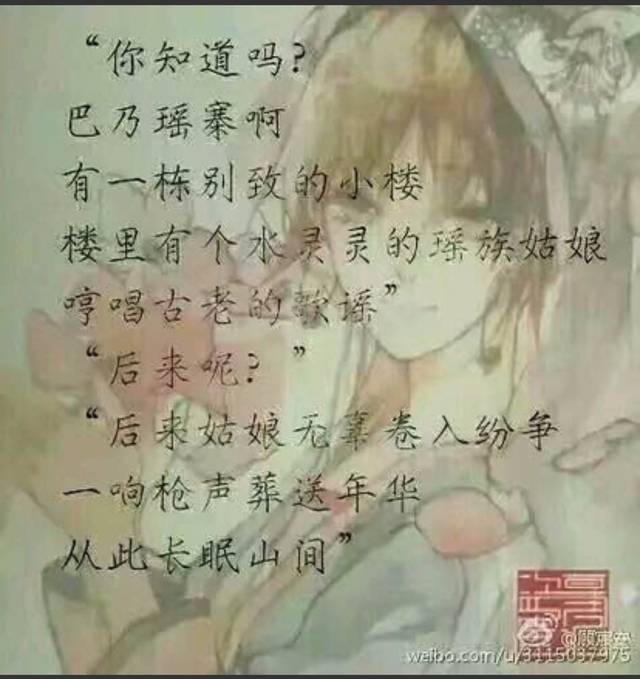 “你知道吗?
巴乃瑶寨啊
有一栋别致的小楼
楼里有个水灵灵的瑶族姑娘
哼唱古老的歌谣”
“后来呢?”
“后来姑娘无辜卷入纷争
一响枪声葬送年华
从此长眠山间”
weibo.com/u/3115037975